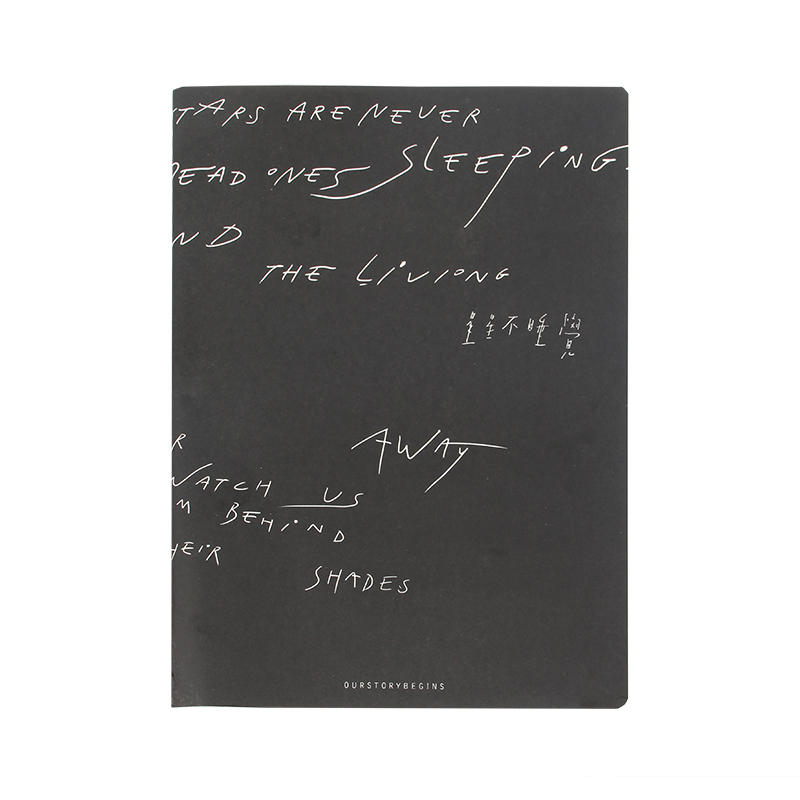 TARS ARE NEVER
SLEEPING
EAD ONES
ND
THE LIVIONG
星星不睡覺
AWAY
R
WATCH US
M BEHIND
HEIR
SHADES
OURSTORYBEGINS